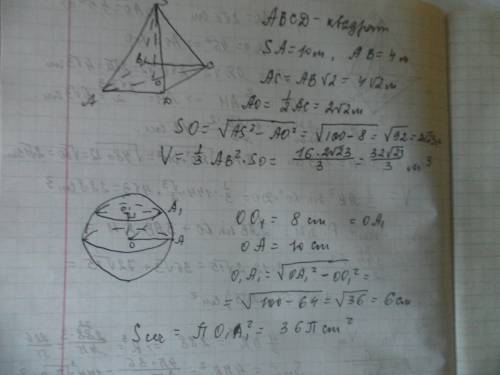 ABCD - квадрат
SA = 10 м, AB = 4 м
AC = AB√2 = 4√2 м
AO = 1/2 AC = 2√2 м
SO = √(AS² - AO²) = √(100 - 8) = √92 = 2√23 м
V = 1/3 AB² · SO = (16 · 2√23)/3 = (32√23)/3 м³
A B C D O
O₁ A₁ O A
OO₁ = 8 cm = OA₁
OA = 10 cm
O₁A₁ = √(OA₁² - OO₁²) =
= √(100 - 64) = √36 = 6 см
Sсеч = П O₁A₁² = 36П cm²